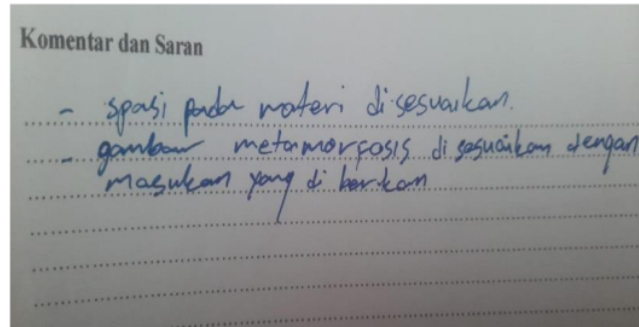 Komentar dan Saran
- spasi pada materi disesuaikan.
- gambar metamorfosis disesuaikan dengan
masukan yang di berikan